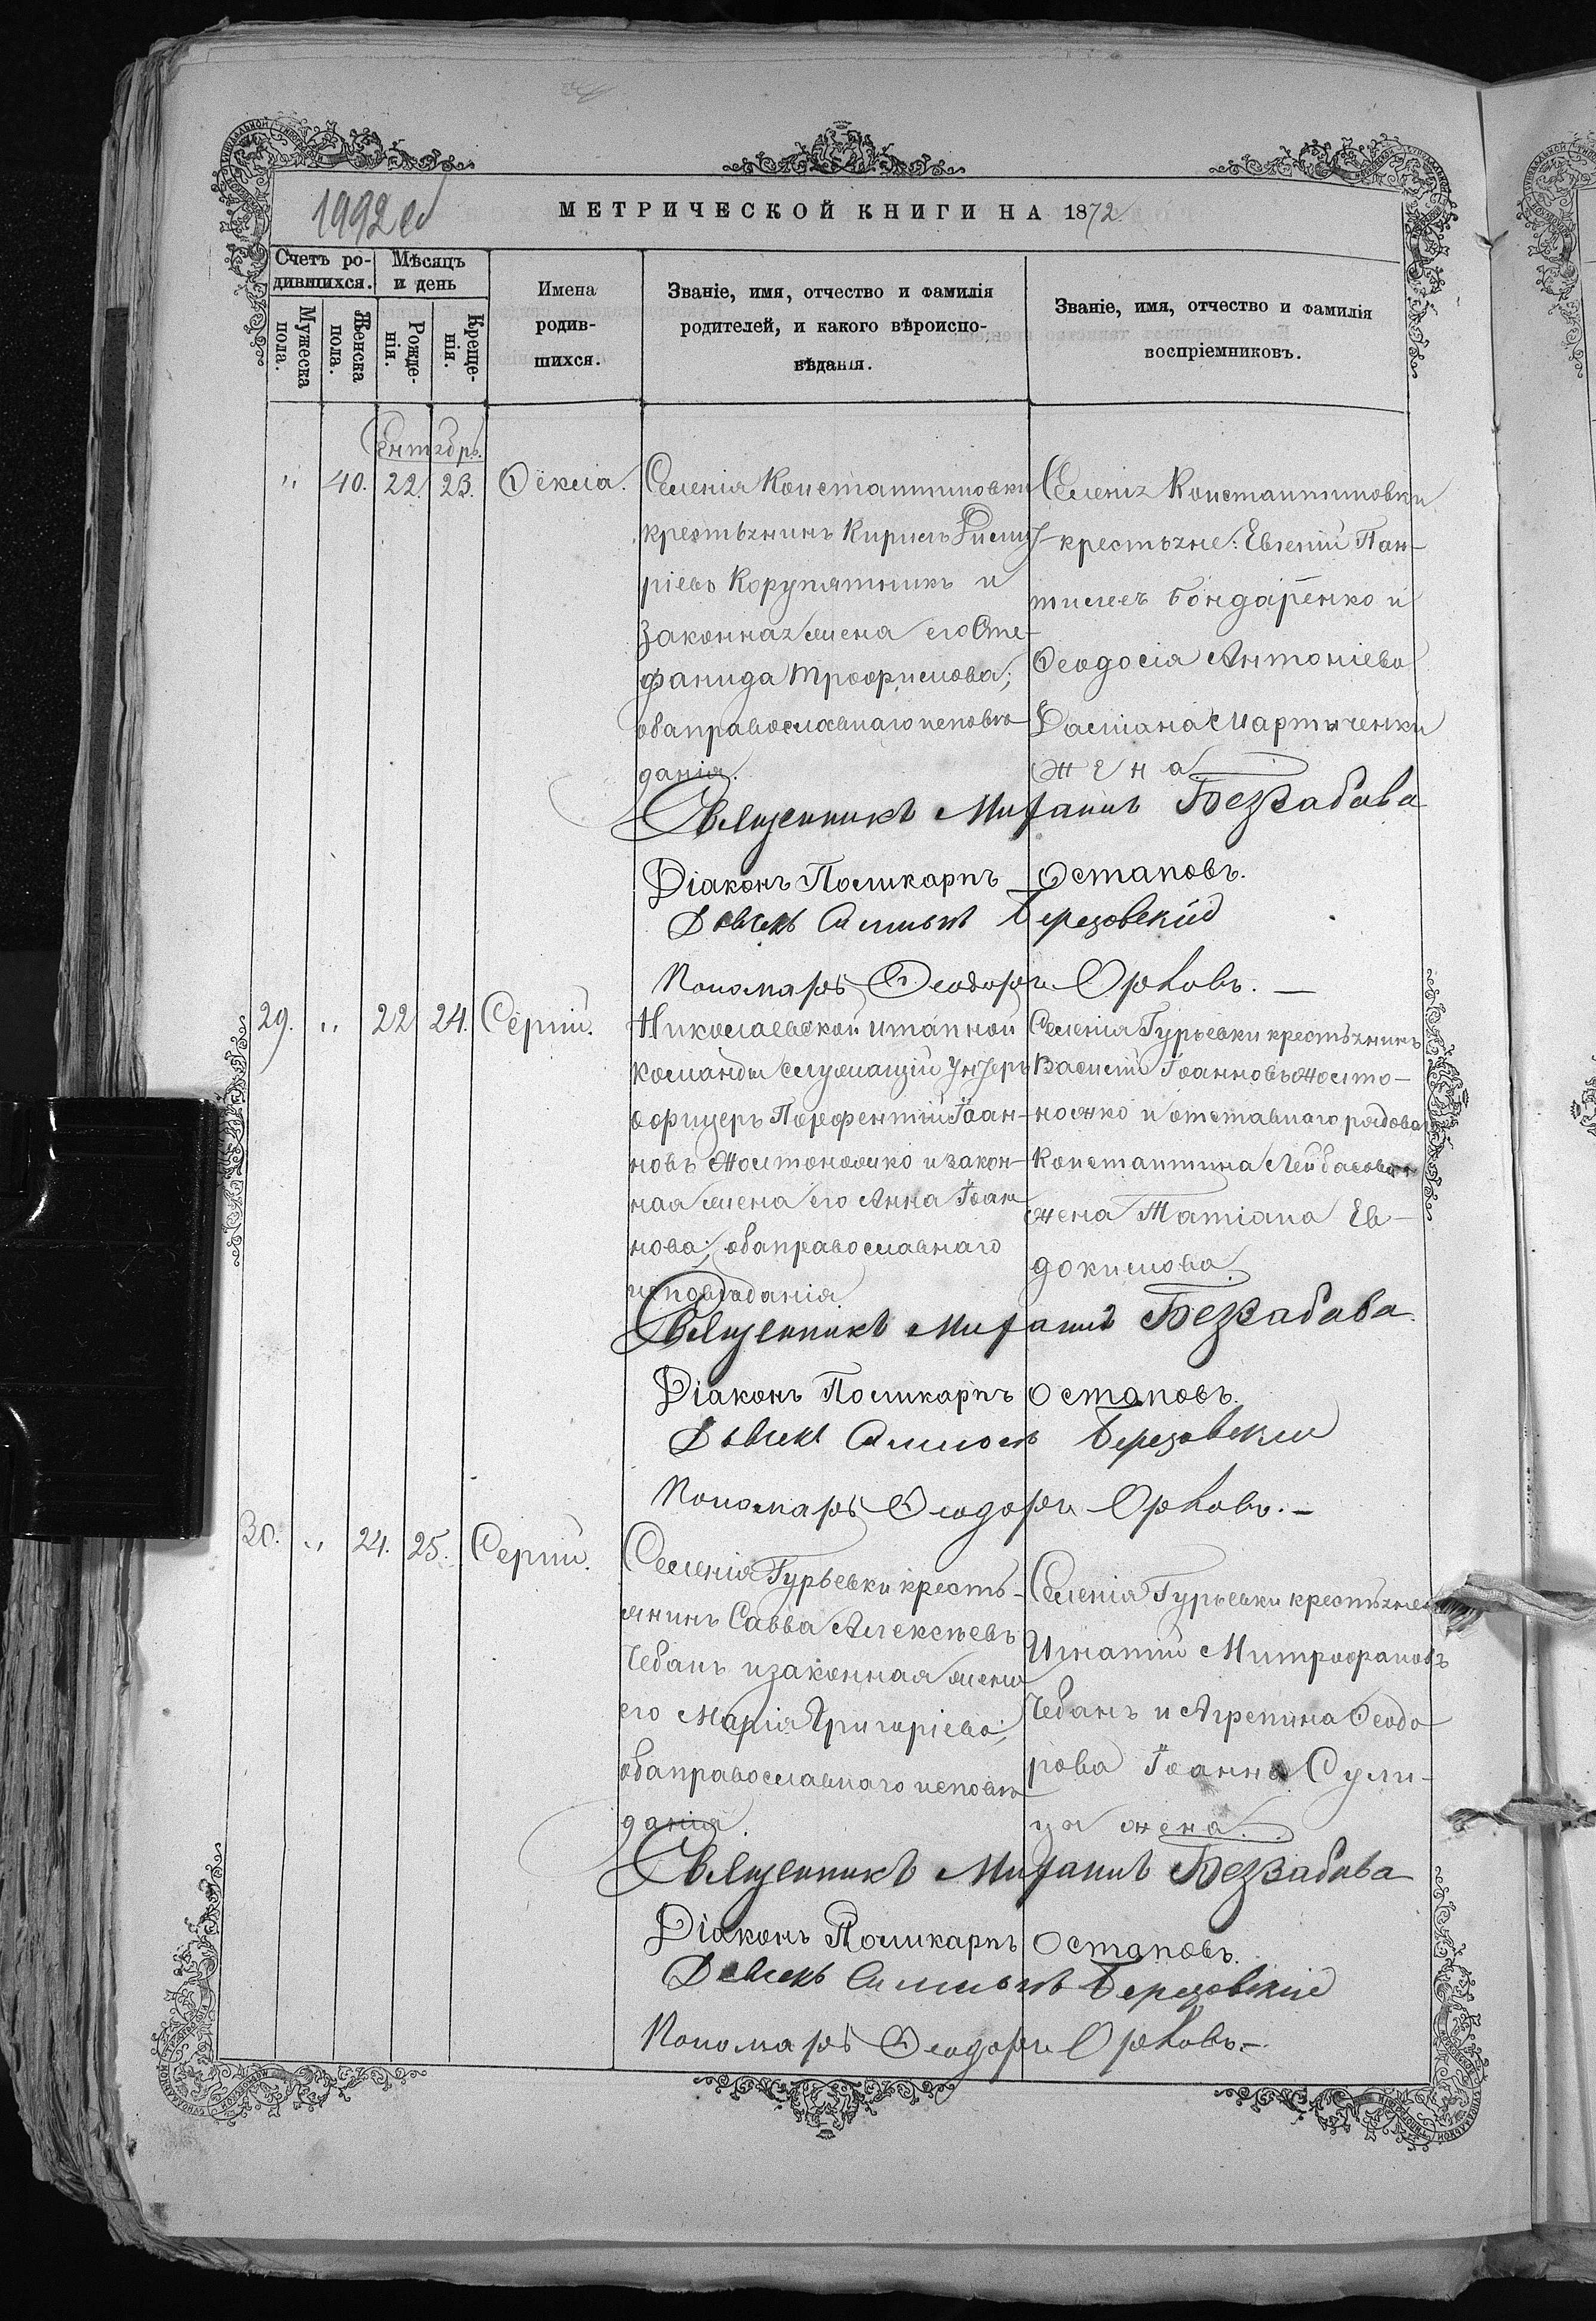 1992 об
МЕТРИЧЕСКОЙ КНИГИ НА 1872
Счетъ ро-
дившихся.
Мѣсяцъ
и день
Мужеска
пола.
Женска
пола.
Рожде-
нія.
Креще-
нія.
Имена
родив-
шихся.
Званіе, имя, отчество и фамилія
родителей, и какого вѣроиспо-
вѣданія.
Званіе, имя, отчество и фамилія
воспріемниковъ.
Сентябрь.
" 40. 22. 23. Ѳекла.
Селенія Константиновки
крестьянинъ Кирилъ Дими
ріевъ Корупятникъ и
законная жена его Сте-
фанида Трофимова;
оба православнаго исповѣ-
данія.
Селенія Константиновки
крестьяне: Евгеній Пан-
тилеевъ Бондаренко и
Ѳеодосія Антоніева
Даміана Мартыченки
жена
Священникъ Михаилъ Беззабава
Діаконъ Поликарпъ Остаповъ.
Дьячекъ Березовскій
Пономарь Ѳеодоръ Орловъ.
29. " 22 24. Сергій.
Николаевской этапной
команды служащій Унтеръ
офицеръ Парфентій Іоан-
новъ Жолтоножко и закон-
ная жена его Анна Іоан
нова; оба православнаго
исповѣданія.
Селенія Гурьевки крестьянинъ
Василій Іоанновъ Жолто-
ножко и отставнаго рядова
Константина
жена Татіана Ев-
докимова.
Священникъ Михаилъ Беззабава.
Діаконъ Поликарпъ Остаповъ.
Дьячекъ Березовскій
Пономарь Ѳеодоръ Орловъ.
30. " 24. 25. Сергій.
Селенія Гурьевки кресть-
янинъ Савва Алексѣевъ
Чебанъ и законная жена
его Марія Григоріева;
оба православнаго исповѣ
данія.
Селенія Гурьевки крестьяне
Игнатій Митрофановъ
Чебанъ и Агрепина Ѳеодо
рова Іоанна Сули-
цы жена.
Священникъ Михаилъ Беззабава
Діаконъ Поликарпъ Остаповъ.
Дьячекъ Березовскій
Пономарь Ѳеодоръ Орловъ.